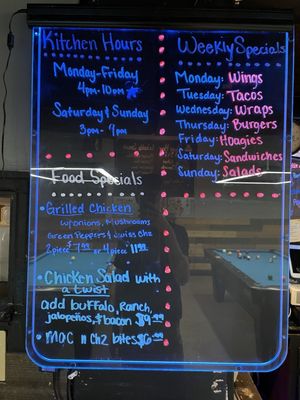 Kitchen Hours
Monday-Friday
4pm-10pm
Saturday & Sunday
3pm-9pm
Food Specials
• Grilled Chicken
w/onions, Mushrooms
Green Peppers & Swiss Chz
2 piece $7.99 or 4 piece 11.99
• Chicken Salad with
a twist
add buffalo, Ranch,
jalapeños, & bacon $9.99
• Mac n Chz bites $6.99
Weekly Specials
Monday: Wings
Tuesday: Tacos
Wednesday: Wraps
Thursday: Burgers
Friday: Hoagies
Saturday: Sandwiches
Sunday: Salads